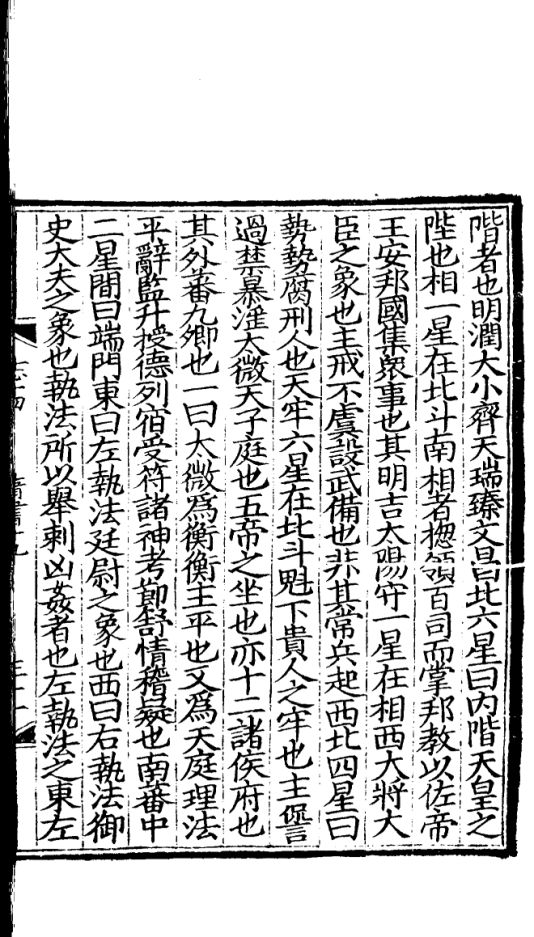 階者也明潤大小齊天瑞臻文昌北六星曰内階天皇之
陛也相一星在北斗南相者揔領百司而掌邦教以佐帝
王安邦國集衆事也其明吉太陽守一星在相西大將大
臣之象也主戒不虞設武備也非其常兵起西北四星曰
勢勢腐刑人也天牢六星在北斗魁下貴人之牢也主𠍴
過禁暴淫太微天子庭也五帝之坐也亦十二諸侯府也
其外蕃九卿也一曰太微爲衡衡主平也又爲天庭理法
平辭監升授德列宿受符諸神考節舒情稽疑也南蕃中
二星間曰端門東曰左執法廷尉之象也西曰右執法御
史大夫之象也執法所以舉刺凶姦者也左執法之東左